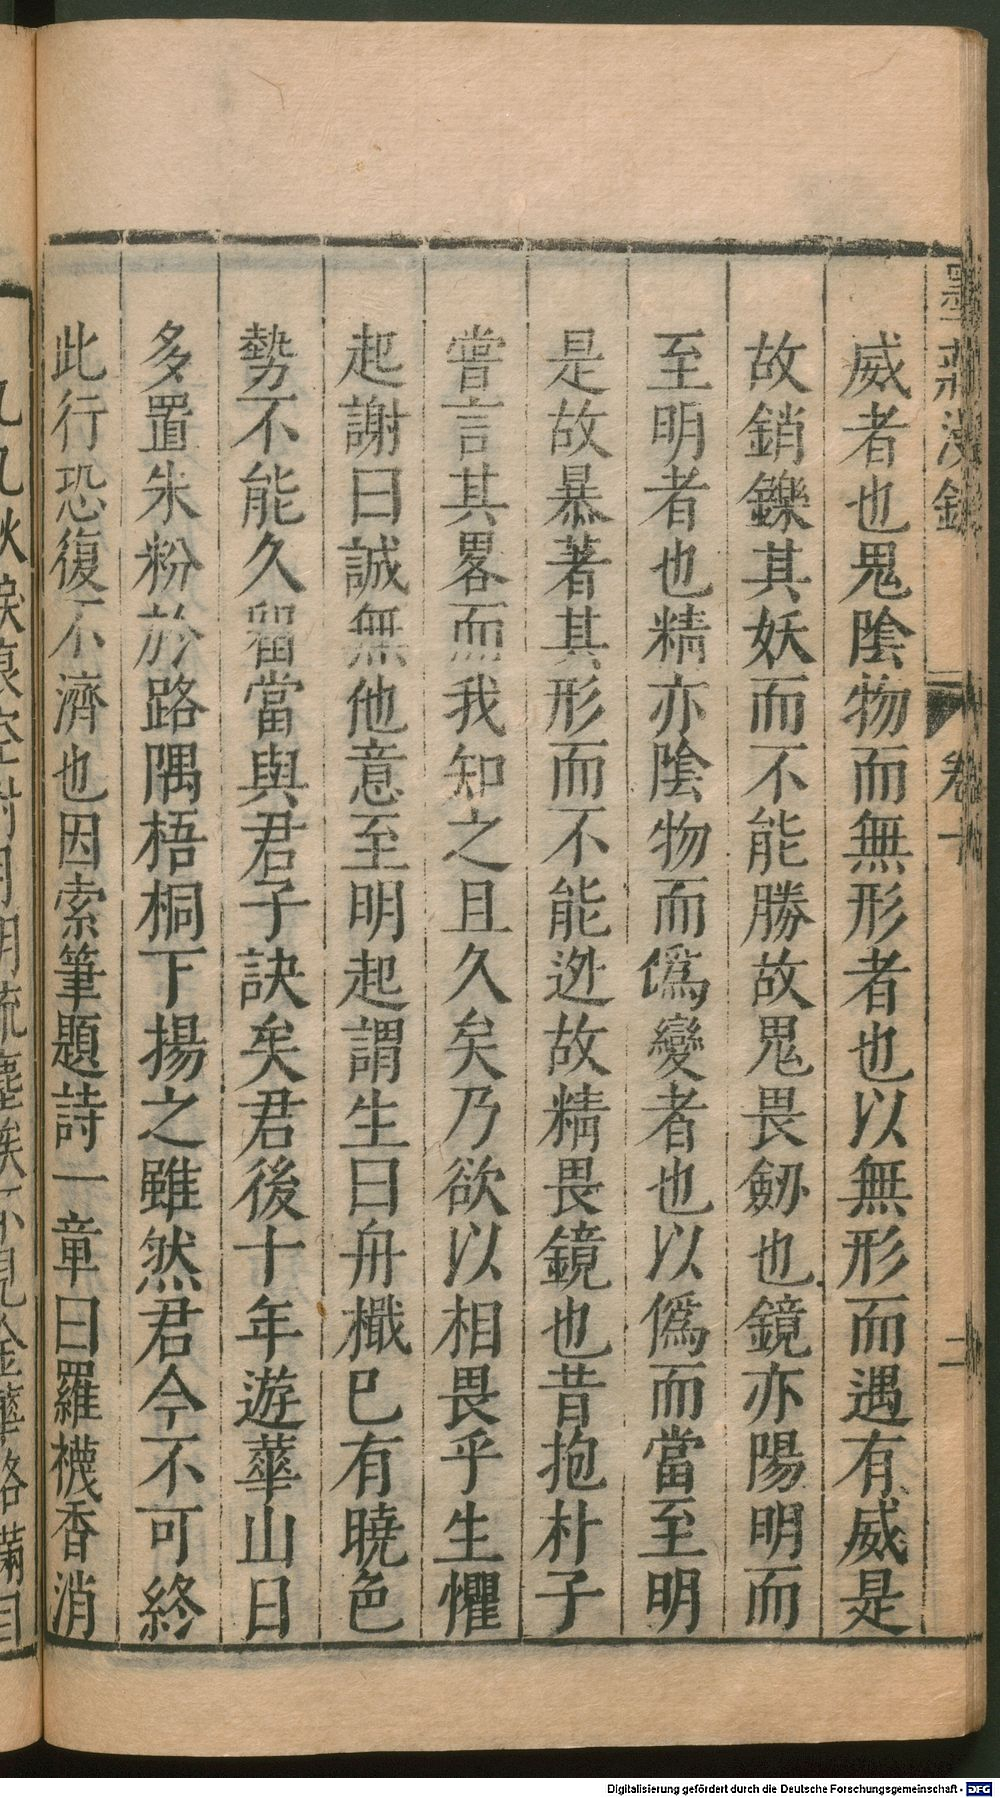 威者也鬼陰物而無形者也以無形而遇有威是
故銷鑠其妖而不能勝故鬼畏劒也鏡亦陽明而
至明者也精亦陰物而僞變者也以僞而當至明
是故暴著其形而不能迯故精畏鏡也昔抱朴子
嘗言其畧而我知之且久矣乃欲以相畏乎生懼
起謝曰誠無他意至明起謂生曰舟檝已有曉色
勢不能久畱當與君子訣矣君後十年遊華山日
多置朱粉於路隅梧桐下揚之雖然君今不可終
此行恐復不濟也因索筆題詩一章曰羅襪香消
九九秋淚痕空對月明流塵埃不見金華路滿目
卷十
二
Digitalisierung gefördert durch die Deutsche Forschungsgemeinschaft - DFG